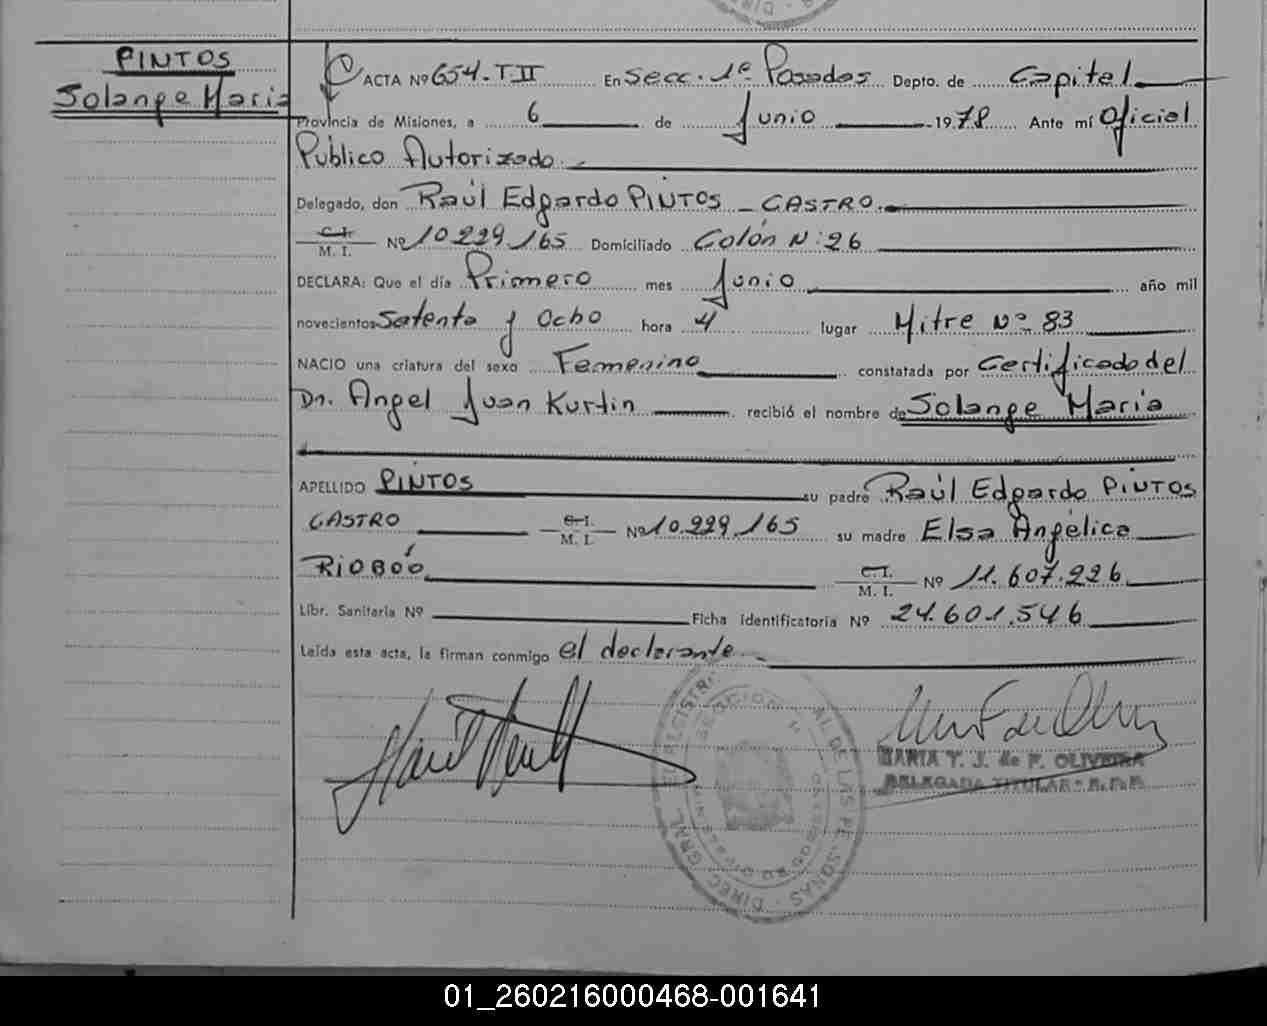 PINTOS
Solange Maria
ACTA Nº 654-T.II En Secc. 1º Posadas Depto. de Capitel
Provincia de Misiones, a 6 de Junio 1978 Ante mí Oficial
Público Autorizado.
Delegado, don Raúl Edgardo PINTOS - CASTRO.
C.I.
M. I. Nº 10.229.165 Domiciliado Colón Nº 26
DECLARA: Que el día Primero mes Junio año mil
novecientos Setenta y Ocho hora 4 lugar Mitre Nº 83
NACIO una criatura del sexo Femenino constatada por Certificado del
Dr. Angel Juan Kurtin recibió el nombre de Solange Maria
APELLIDO PINTOS su padre Raúl Edgardo PINTOS
CASTRO C.I.
M. I. Nº 10.229.165 su madre Elsa Angélica
RIOBÓO C.I.
M. I. Nº 11.607.226
Libr. Sanitaria Nº Ficha identificatoria Nº 24.601.546
Leída esta acta, la firman conmigo el declarante
MARIA T. J. de F. OLIVEIRA
DELEGADA TITULAR
01_260216000468-001641